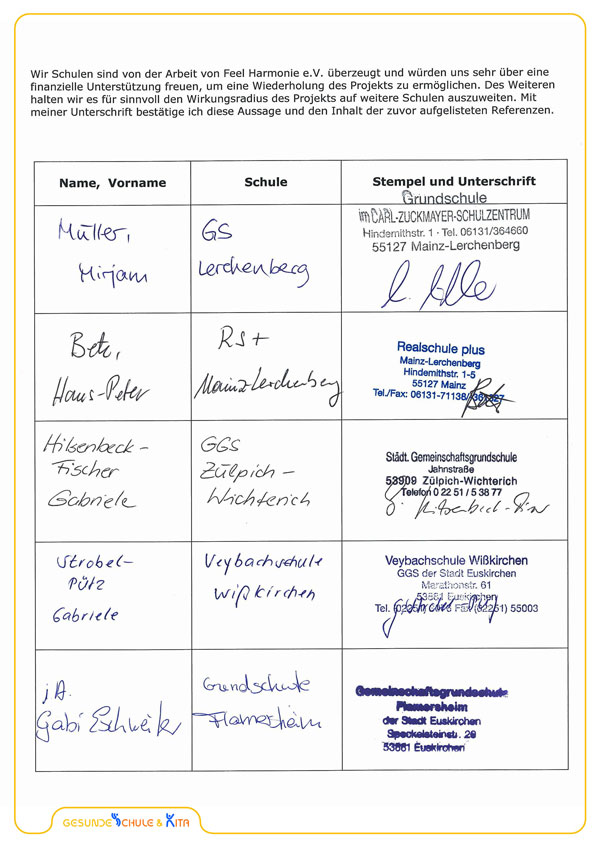 Wir Schulen sind von der Arbeit von Feel Harmonie e.V. überzeugt und würden uns sehr über eine
finanzielle Unterstützung freuen, um eine Wiederholung des Projekts zu ermöglichen. Des Weiteren
halten wir es für sinnvoll den Wirkungsradius des Projekts auf weitere Schulen auszuweiten. Mit
meiner Unterschrift bestätige ich diese Aussage und den Inhalt der zuvor aufgelisteten Referenzen.
Name, Vorname
Schule
Stempel und Unterschrift
Müller,
Mirjam
GS
Lerchenberg
Grundschule
im CARL-ZUCKMAYER-SCHULZENTRUM
Hindemithstr. 1 · Tel. 06131/364660
55127 Mainz-Lerchenberg
Betz,
Hans-Peter
RS+
Mainz-Lerchenberg
Realschule plus
Mainz-Lerchenberg
Hindemithstr. 1-5
55127 Mainz
Tel./Fax: 06131-71138/
Hilsenbeck-
Fischer
Gabriele
GGS
Zülpich-
Wichterich
Städt. Gemeinschaftsgrundschule
Jahnstraße
53909 Zülpich-Wichterich
Telefon 0 22 51 / 5 38 77
Strobel-
Pütz
Gabriele
Veybachschule
Wißkirchen
Veybachschule Wißkirchen
GGS der Stadt Euskirchen
Marathonstr. 61
53881 Euskirchen
Tel. Fax (02251) 55003
i.A.
Gabi Eschweiler
Grundschule
Flamersheim
Gemeinschaftsgrundschule
Flamersheim
der Stadt Euskirchen
Speckelsteinstr. 29
53881 Euskirchen
GESUNDE SCHULE & KITA